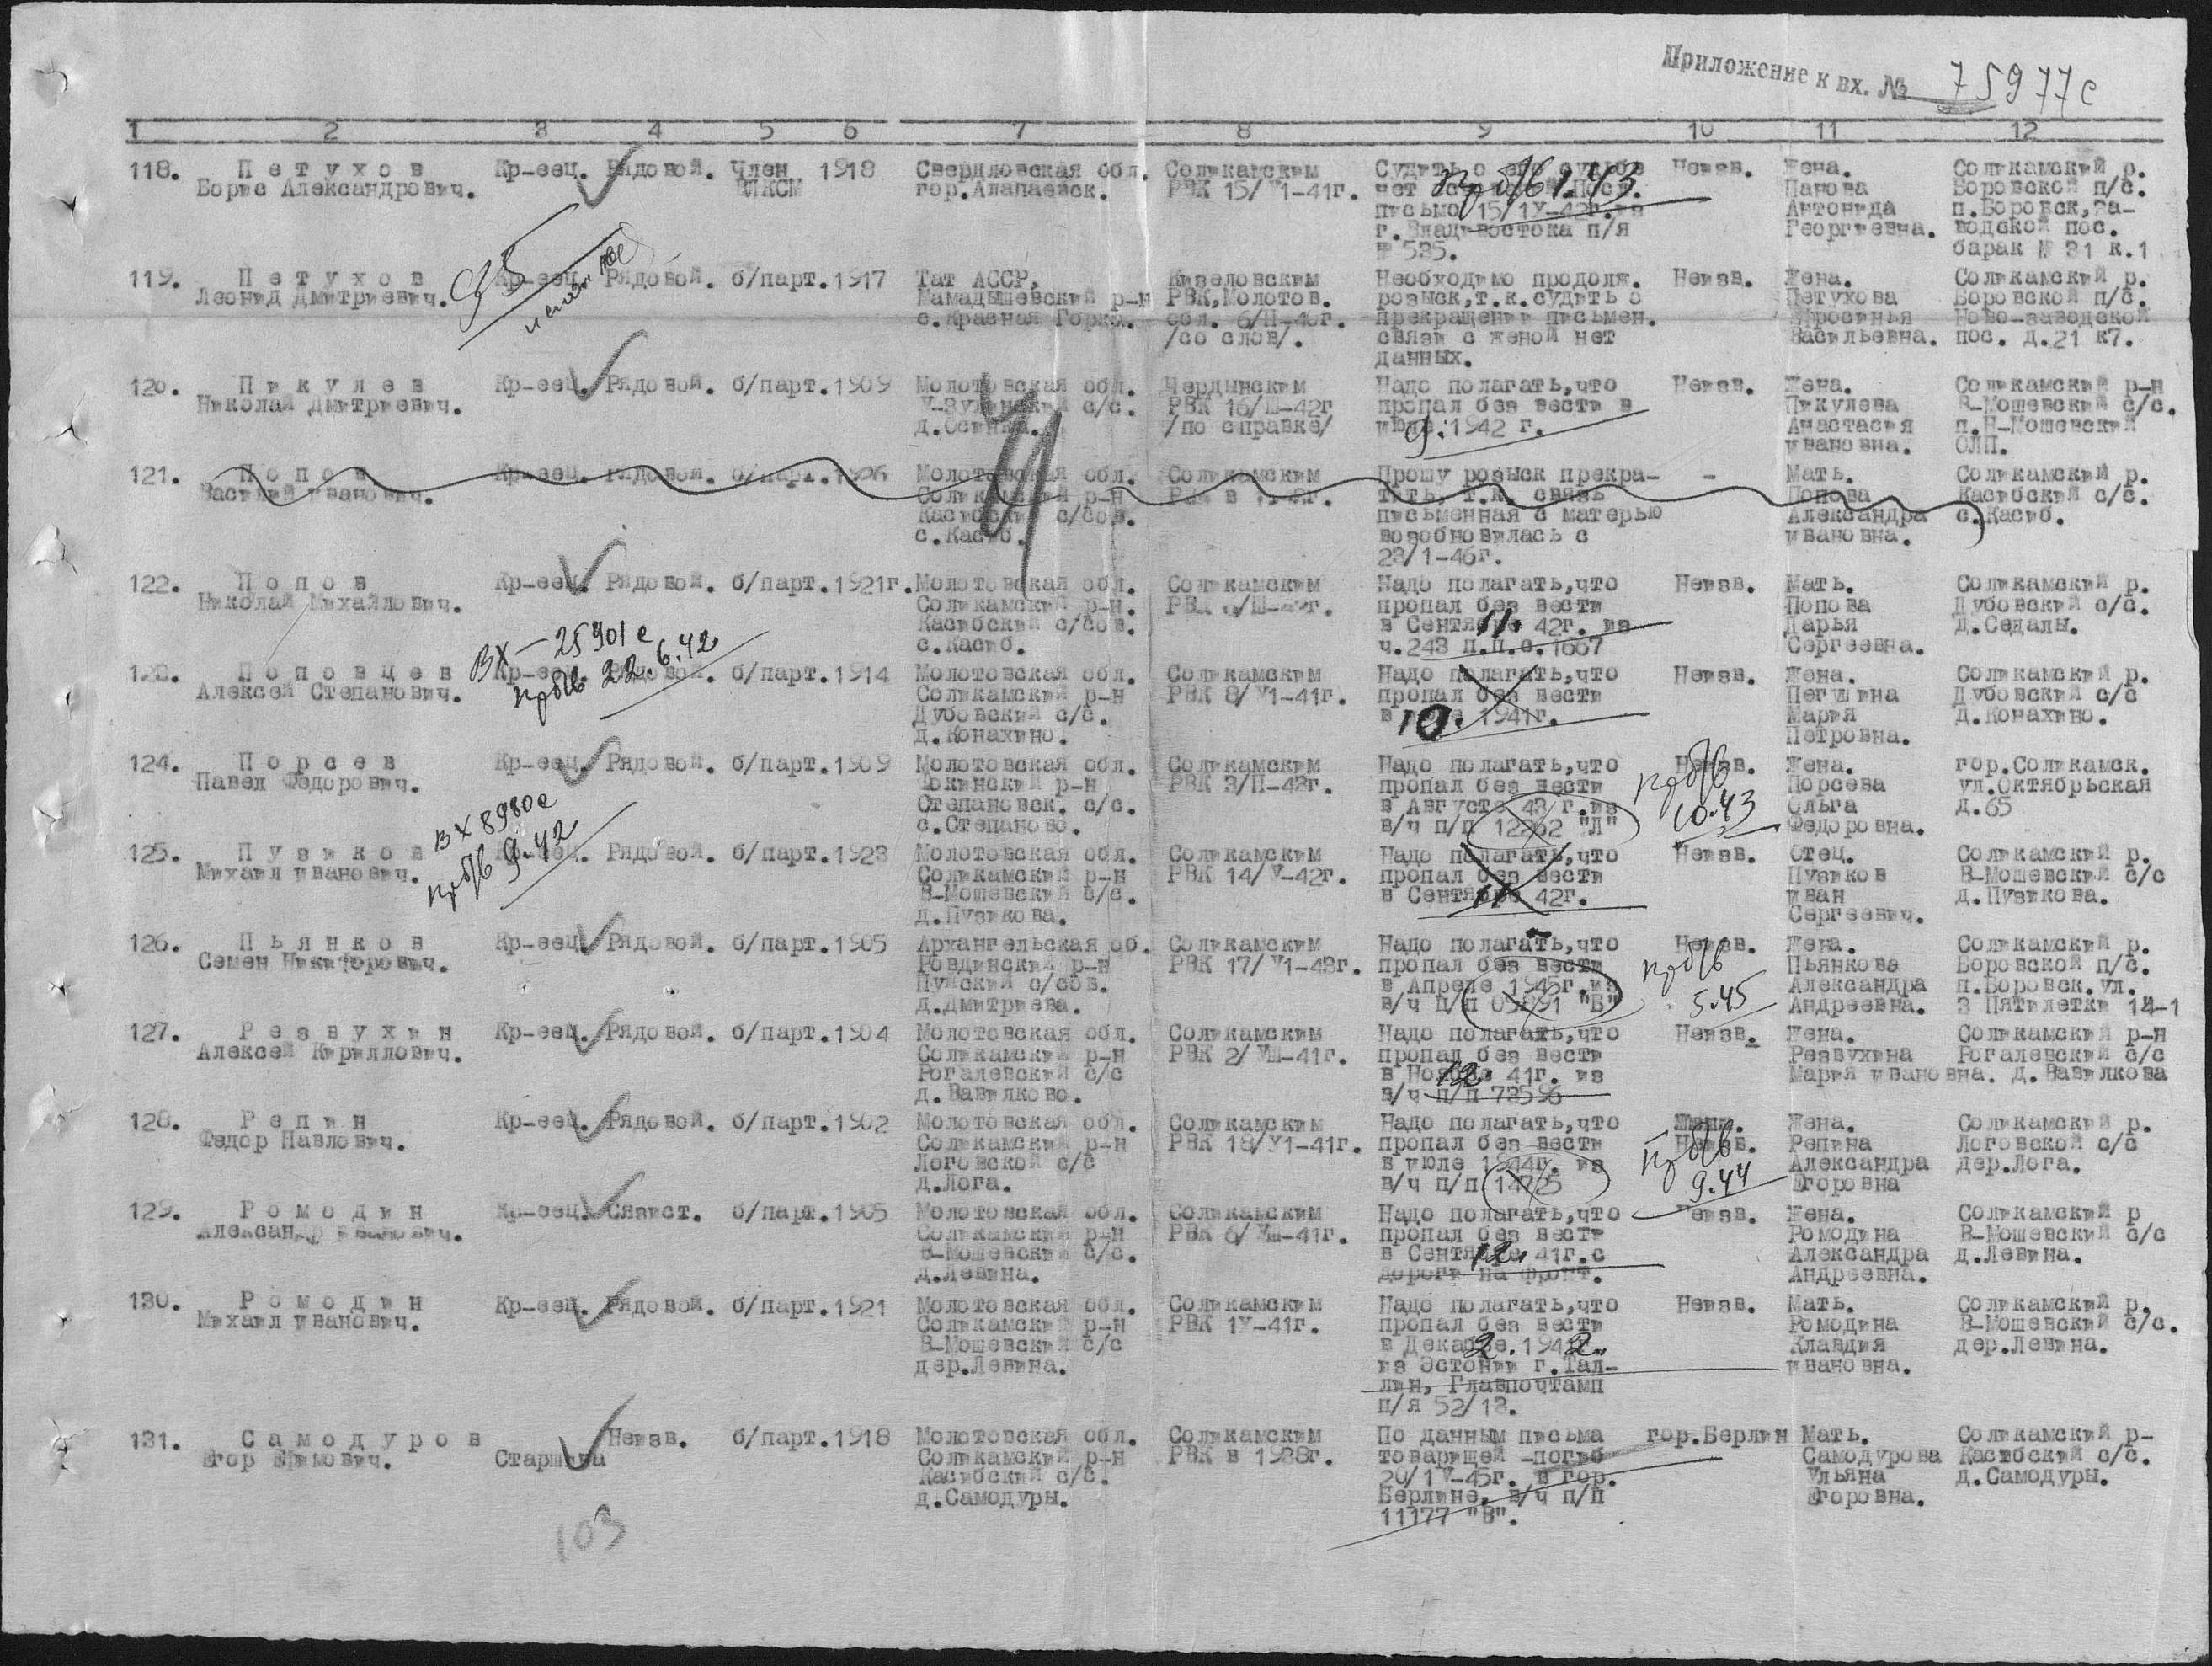 Приложение к вх. № 75977с
1 2 3 4 5 6 7 8 9 10 11 12
118. Петухов Кр-еец. Рядовой. Член 1918 Свердловская обл. Соликамским Судить о его судьбе Неизв. Жена. Соликамский р.
Борис Александрович. ВЛКСМ гор.Алапаевск. РВК 15/VI-41г. нет Посл. пр б/в 1.43 Панова Боровской п/с.
письмо 15/IX-42г. из Антонида п.Боровск,за-
г.Владивостока п/я Георгиевна. водской пос.
№ 535. барак № 31 к.1
119. Петухов Кр-еец. Рядовой. б/парт. 1917 Тат АССР, Кизеловским Необходимо продолж. Неизв. Жена. Соликамский р.
Леонид Дмитриевич. Мамадышевский р-н РВК,Молотов. розыск,т.к.судить о Петухова Боровской п/с.
с.Красная Горка. обл. 6/II-40г. прекращении письмен. Ефросинья Ново-заводской
/со слов/. связи с женой нет Васильевна. пос. д.21 к7.
данных.
120. Пикулев Кр-еец. Рядовой. б/парт. 1909 Молотовская обл. Чердынским Надо полагать,что Неизв. Жена. Соликамский р-н
Николай Дмитриевич. с/с. РВК 16/III-42г пропал без вести в Пикулева В-Мошевский с/с.
д.Осинка. /по справке/ июле 1942 г. 9. Анастасия п.Н-Мошевский
Ивановна. ОЛП.
121. Попов Кр-еец. Рядовой. б/парт. 1926 Молотовская обл. Соликамским Прошу розыск прекра- - Мать. Соликамский р.
Василий Иванович. Соликамский р-н РВК в тить, т.к. связь Попова Касибский с/с.
Касибский с/сов. письменная с матерью Александра с.Касиб.
с.Касиб. возобновилась с Ивановна.
23/1-46г.
122. Попов Кр-еец. Рядовой. б/парт. 1921г. Молотовская обл. Соликамским Надо полагать,что Неизв. Мать. Соликамский р.
Николай Михайлович. Соликамский р-н. РВК пропал без вести Попова Дубовский с/с.
Касибский с/сов. в Сентябре 42г. из 11. Дарья д.Седалы.
с.Касиб. ч.243 п.п.с.1667 Сергеевна.
вх-25901с
пр б/в 22.6.42
123. Поповцев Кр-еец. Рядовой. б/парт. 1914 Молотовская обл. Соликамским Надо полагать,что Неизв. Жена. Соликамский р.
Алексей Степанович. Соликамский р-н РВК 8/VI-41г. пропал без вести Пегушина Дубовский с/с
Дубовский с/с. в 1941г. 10. Мария д.Конахино.
д.Конахино. Петровна.
124. Порсев Кр-еец. Рядовой. б/парт. 1909 Молотовская обл. Соликамским Надо полагать,что Неизв. Жена. гор.Соликамск.
Павел Федорович. р-н РВК 3/II-43г. пропал без вести пр б/в Порсева ул.Октябрьская
Степановск. с/с. в Августе 43/г.из 10.43 Ольга д.65
с.Степаново. в/ч п/п 12262 "Л" Федоровна.
вх 8980с
пр б/в 9.42
125. Пузиков Кр-еец. Рядовой. б/парт. 1923 Молотовская обл. Соликамским Надо полагать,что Неизв. Отец. Соликамский р.
Михаил Иванович. Соликамский р-н РВК 14/V-42г. пропал без вести Пузиков В-Мошевский с/с
В-Мошевский с/с. в Сентябре 42г. 11 Иван д.Пузикова.
д.Пузикова. Сергеевич.
126. Пьянков Кр-еец. Рядовой. б/парт. 1905 Архангельская об. Соликамским Надо полагать,что Неизв. Жена. Соликамский р.
Семен Никифорович. Ровдинский р-н РВК 17/VI-43г. пропал без вести пр б/в Пьянкова Боровской п/с.
Пуйский с/сов. в Апреле 1945г.из 5.45 Александра п.Боровск.ул.
д.Дмитриева. в/ч п/п "Б" Андреевна. 3 Пятилетки 14-1
127. Резвухин Кр-еец. Рядовой. б/парт. 1904 Молотовская обл. Соликамским Надо полагать,что Неизв. Жена. Соликамский р-н
Алексей Кириллович. Соликамский р-н РВК 2/VIII-41г. пропал без вести Резвухина Рогалевский с/с
Рогалевский с/с в Ноябре 41г. из 12 Мария Ивановна. д.Вавилкова
д.Вавилково. в/ч п/п 73596
128. Репин Кр-еец. Рядовой. б/парт. 1902 Молотовская обл. Соликамским Надо полагать,что Жена. Соликамский р.
Федор Павлович. Соликамский р-н РВК 18/VI-41г. пропал без вести Неизв. Репина Логовской с/с
Логовской с/с в июле 1944г. из пр б/в Александра дер.Лога.
д.Лога. в/ч п/п 14725 9.44 Егоровна
129. Ромодин Кр-еец. Связист. б/парт. 1905 Молотовская обл. Соликамским Надо полагать,что Неизв. Жена. Соликамский р
Александр Иванович. Соликамский р-н РВК 6/VIII-41г. пропал без вести Ромодина В-Мошевский с/с
В-Мошевский с/с. в Сентябре 41г.с 12. Александра д.Левина.
д.Левина. дороги на фронт. Андреевна.
130. Ромодин Кр-еец. Рядовой. б/парт. 1921 Молотовская обл. Соликамским Надо полагать,что Неизв. Мать. Соликамский р.
Михаил Иванович. Соликамский р-н РВК 1У-41г. пропал без вести Ромодина В-Мошевский с/с.
В-Мошевский с/с в Декабре. 1942 2. Клавдия дер.Левина.
дер.Левина. из Эстонии г.Тал- Ивановна.
лин, Главпочтамп
п/я 52/13.
131. Самодуров Неизв. б/парт. 1918 Молотовская обл. Соликамским По данным письма гор.Берлин Мать. Соликамский р-
Егор Ефимович. Старшина Соликамский р-н РВК в 1938г. товарищей -погиб Самодурова Касибский с/с.
Касибский с/с. 20/1У-45г. в гор. Ульяна д.Самодуры.
д.Самодуры. Берлине, в/ч п/п Егоровна.
11177 "В".
103